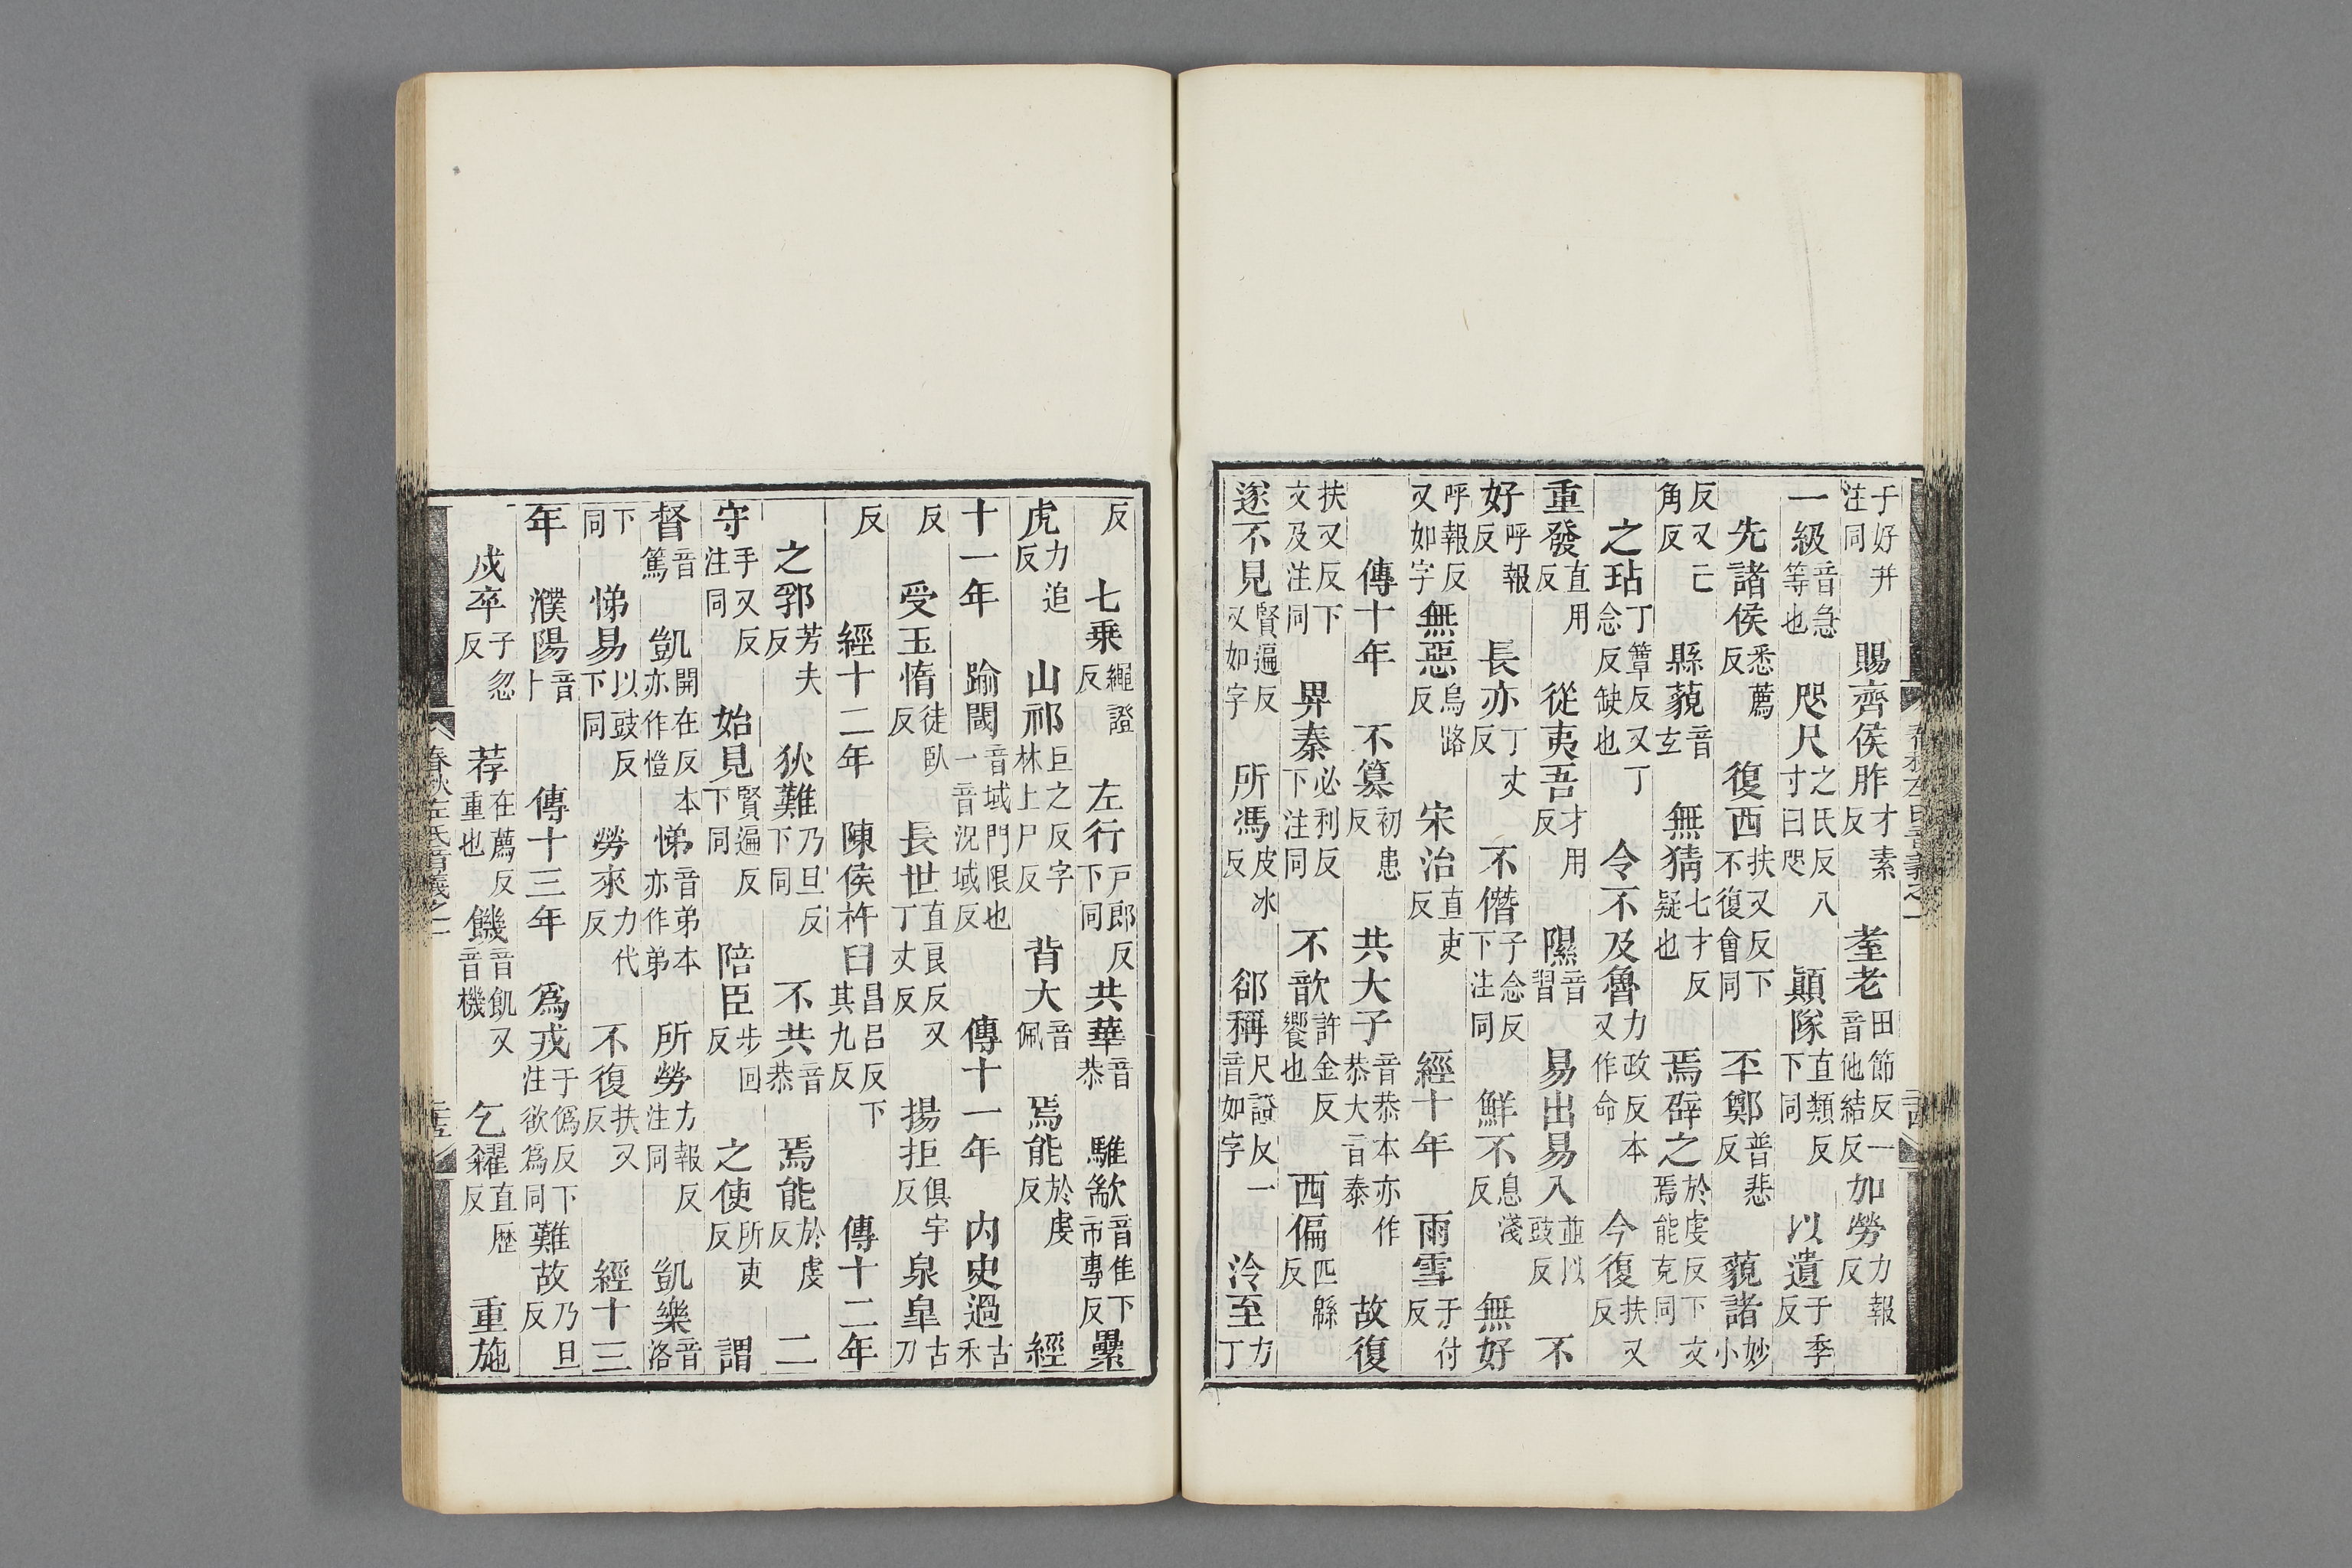 于好并注同　賜齊侯胙才素反　耋老田節反一音他結反加勞力報反
一級音急等也　咫尺之氏反八寸曰咫　顚隊直類反下同　以遺于季反
先諸侯悉薦反　復西扶又反下不復會同　㔻鄭普悲反　藐諸妙小
反又亡角反　縣藐音玄　無猜七才反疑也　焉辟之於虔反下文焉能克同
之玷丁簟反又丁念反缺也　令不及魯力政反本又作命　今復扶又反
重發直用反　從夷吾才用反　隰音習　易出易入並以豉反　不
好呼報反　長亦丁丈反　不僭子念反下注同　鮮不息淺反　無好
呼報反又如字　無惡烏路反　宋治直吏反　經十年　雨雪于付反
傳十年　不篡初患反　共大子音恭本亦作恭大音泰　故復
扶又反下文及注同　畀秦必利反下注同　不歆許金反饗也　西偏匹緜反
遂不見賢遍反又如字　所馮皮冰反　郤稱尺證反一音如字　泠至力丁
反　七乗繩證反　左行戸郎反下同　共華音恭　騅歂音隹下市專反　纍
虎力追反　山祁巨之反字林上尸反　背大音佩　焉能於虔反　經
十一年　踰閾音域門限也一音況域反　傳十一年　内史過古禾
反　受玉惰徒臥反　長世直良反又丁丈反　揚拒俱宇反　泉皐古刀
反　經十二年　陳侯杵臼昌呂反下其九反　傳十二年
之郛芳夫反　狄難乃旦反下同　不共音恭　焉能於虔反　二
守手又反注同　始見賢遍反下同　陪臣步回反　之使所吏反　謂
督音篤　凱開在反本亦作愷　悌音弟本亦作弟　所勞力報反注同　凱樂音洛
下同　悌易以豉反下同　勞來力代反　不復扶又反　經十三
年　濮陽音卜　傳十三年　爲戎于僞反下注欲爲同　難故乃旦反
戍卒子忽反　荐在薦反重也　饑音飢又音機　乞糴直歷反　重施
春秋左氏音義之一